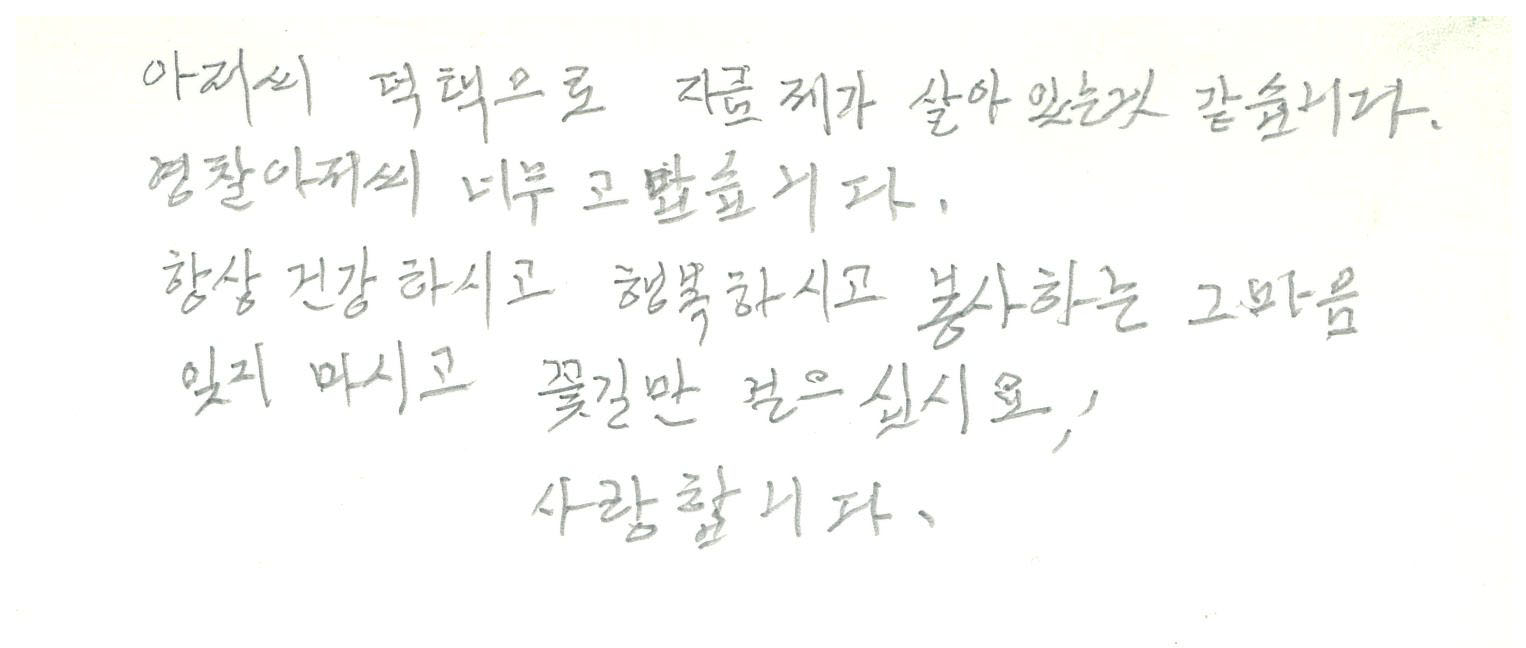 아저씨 덕택으로 지금 제가 살아 있는것 같습니다.
경찰아저씨 너무 고맙습니다.
항상 건강하시고 행복하시고 봉사하는 그마음
잊지 마시고 꽃길만 걸으십시요,
사랑합니다.